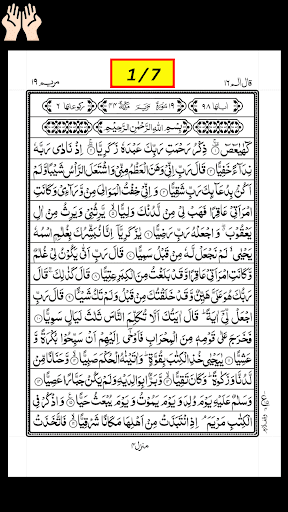 1/7
قال الم ١٦
مريم ١٩
اٰیاتها ٩٨
١٩ سُوْرَةُ مَرْيَمَ مَكِّيَّةٌ ٤٤
ركوعاتها ٦
بِسْمِ اللهِ الرَّحْمٰنِ الرَّحِيْمِ
كٓهٰيٰعٓصٓ ۝ ذِكْرُ رَحْمَتِ رَبِّكَ عَبْدَهٗ زَكَرِيَّا ۝ اِذْ نَادٰى رَبَّهٗ
نِدَآءً خَفِيًّا ۝ قَالَ رَبِّ اِنِّيْ وَهَنَ الْعَظْمُ مِنِّيْ وَاشْتَعَلَ الرَّاْسُ شَيْبًا وَّلَمْ
اَكُنْۢ بِدُعَآئِكَ رَبِّ شَقِيًّا ۝ وَاِنِّيْ خِفْتُ الْمَوَالِيَ مِنْ وَّرَآءِيْ وَكَانَتِ
امْرَاَتِيْ عَاقِرًا فَهَبْ لِيْ مِنْ لَّدُنْكَ وَلِيًّا ۝ يَّرِثُنِيْ وَيَرِثُ مِنْ اٰلِ
يَعْقُوْبَ وَاجْعَلْهُ رَبِّ رَضِيًّا ۝ يٰزَكَرِيَّآ اِنَّا نُبَشِّرُكَ بِغُلٰمِ ۨاسْمُهٗ
يَحْيٰى لَمْ نَجْعَلْ لَّهٗ مِنْ قَبْلُ سَمِيًّا ۝ قَالَ رَبِّ اَنّٰى يَكُوْنُ لِيْ غُلٰمٌ
وَّكَانَتِ امْرَاَتِيْ عَاقِرًا وَّقَدْ بَلَغْتُ مِنَ الْكِبَرِ عِتِيًّا ۝ قَالَ كَذٰلِكَ قَالَ
رَبُّكَ هُوَ عَلَيَّ هَيِّنٌ وَّقَدْ خَلَقْتُكَ مِنْ قَبْلُ وَلَمْ تَكُ شَيْئًا ۝ قَالَ رَبِّ
اجْعَلْ لِّيْٓ اٰيَةً قَالَ اٰيَتُكَ اَلَّا تُكَلِّمَ النَّاسَ ثَلٰثَ لَيَالٍ سَوِيًّا ۝
فَخَرَجَ عَلٰى قَوْمِهٖ مِنَ الْمِحْرَابِ فَاَوْحٰٓى اِلَيْهِمْ اَنْ سَبِّحُوْا بُكْرَةً وَّ
عَشِيًّا ۝ يٰيَحْيٰى خُذِ الْكِتٰبَ بِقُوَّةٍ وَاٰتَيْنٰهُ الْحُكْمَ صَبِيًّا ۝ وَّحَنَانًا مِّنْ
لَّدُنَّا وَزَكٰوةً وَكَانَ تَقِيًّا ۝ وَّبَرًّۢا بِوَالِدَيْهِ وَلَمْ يَكُنْ جَبَّارًا عَصِيًّا ۝
وَسَلٰمٌ عَلَيْهِ يَوْمَ وُلِدَ وَيَوْمَ يَمُوْتُ وَيَوْمَ يُبْعَثُ حَيًّا ۝ وَاذْكُرْ فِي
الْكِتٰبِ مَرْيَمَ اِذِ انْتَبَذَتْ مِنْ اَهْلِهَا مَكَانًا شَرْقِيًّا ۝ فَاتَّخَذَتْ
منزل ٤